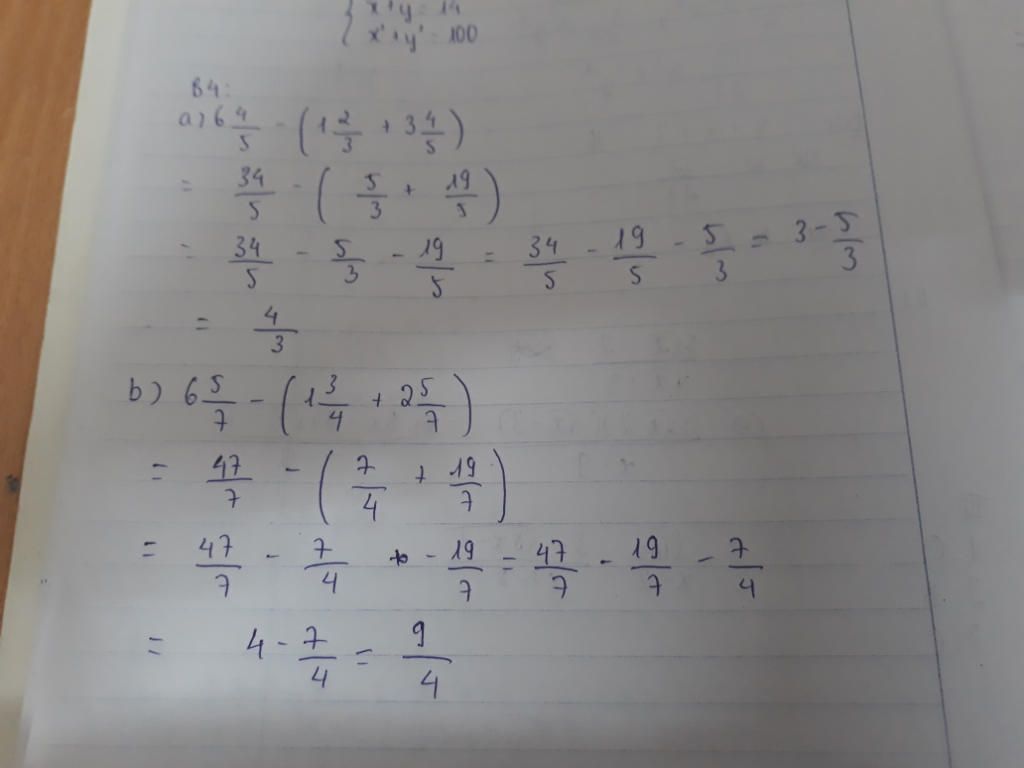 { x + y = 14
x² + y² = 100
B4:
a, 6 4/5 - (1 2/3 + 3 4/5)
= 34/5 - (5/3 + 19/5)
= 34/5 - 5/3 - 19/5 = 34/5 - 19/5 - 5/3 = 3 - 5/3
= 4/3
b) 6 5/7 - (1 3/4 + 2 5/7)
= 47/7 - (7/4 + 19/7)
= 47/7 - 7/4 - 19/7 = 47/7 - 19/7 - 7/4
= 4 - 7/4 = 9/4